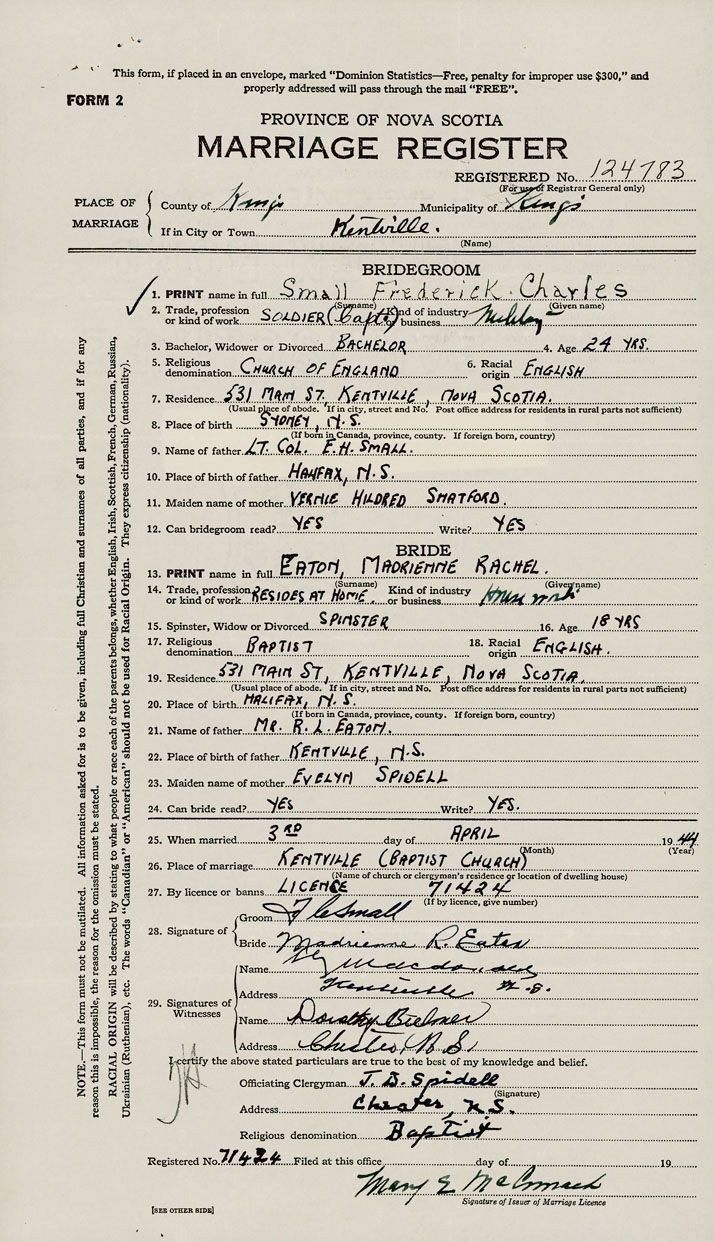 This form, if placed in an envelope, marked "Dominion Statistics—Free, penalty for improper use $300," and
properly addressed will pass through the mail "FREE".
FORM 2
PROVINCE OF NOVA SCOTIA
MARRIAGE REGISTER
REGISTERED No. 124783
(For use of Registrar General only)
PLACE OF MARRIAGE
County of Kings Municipality of Kings
If in City or Town Kentville.
(Name)
BRIDEGROOM
1. PRINT name in full Small Frederick Charles
(Surname) (Given name)
2. Trade, profession or kind of work SOLDIER (Capt) Kind of industry or business Military
3. Bachelor, Widower or Divorced BACHELOR 4. Age 24 YRS.
5. Religious denomination CHURCH OF ENGLAND 6. Racial origin ENGLISH
7. Residence 531 MAIN ST, KENTVILLE, NOVA SCOTIA.
(Usual place of abode. If in city, street and No. Post office address for residents in rural parts not sufficient)
8. Place of birth SYDNEY, N.S.
(If born in Canada, province, county. If foreign born, country)
9. Name of father LT. COL. F.H. SMALL.
10. Place of birth of father HALIFAX, N.S.
11. Maiden name of mother VERNIE HILDRED SHATFORD.
12. Can bridegroom read? YES Write? YES
BRIDE
13. PRINT name in full EATON, MADRIENNE RACHEL.
(Surname) (Given name)
14. Trade, profession or kind of work RESIDES AT HOME. Kind of industry or business House work
15. Spinster, Widow or Divorced SPINSTER 16. Age 18 YRS
17. Religious denomination BAPTIST 18. Racial origin ENGLISH.
19. Residence 531 MAIN ST, KENTVILLE, NOVA SCOTIA.
(Usual place of abode. If in city, street and No. Post office address for residents in rural parts not sufficient)
20. Place of birth HALIFAX, N.S.
(If born in Canada, province, county. If foreign born, country)
21. Name of father MR. R.L. EATON.
22. Place of birth of father KENTVILLE, N.S.
23. Maiden name of mother EVELYN SPIDELL
24. Can bride read? YES Write? YES.
25. When married 3RD day of APRIL 1944
(Month) (Year)
26. Place of marriage KENTVILLE (BAPTIST CHURCH)
(Name of church or clergyman's residence or location of dwelling house)
27. By licence or banns LICENCE 71424
(If by licence, give number)
28. Signature of
Groom F C Small
Bride Madrienne R. Eaton
29. Signatures of Witnesses
Name Macdonald
Address Kentville N.S.
Name Dorothy
Address Chester, N.S.
I certify the above stated particulars are true to the best of my knowledge and belief.
Officiating Clergyman J. D. Spidell
(Signature)
Address Chester, N.S.
Religious denomination Baptist
Registered No. 71424 Filed at this office day of 19
Mary E McCormack
Signature of Issuer of Marriage Licence
[SEE OTHER SIDE]
NOTE.—This form must not be mutilated. All information asked for is to be given, including full Christian and surnames of all parties, and if for any
reason this is impossible, the reason for the omission must be stated.
RACIAL ORIGIN will be described by stating to what people or race each of the parents belongs, whether English, Irish, Scottish, French, German, Russian,
Ukrainian (Ruthenian), etc. The words "Canadian" or "American" should not be used for Racial Origin. They express citizenship (nationality).